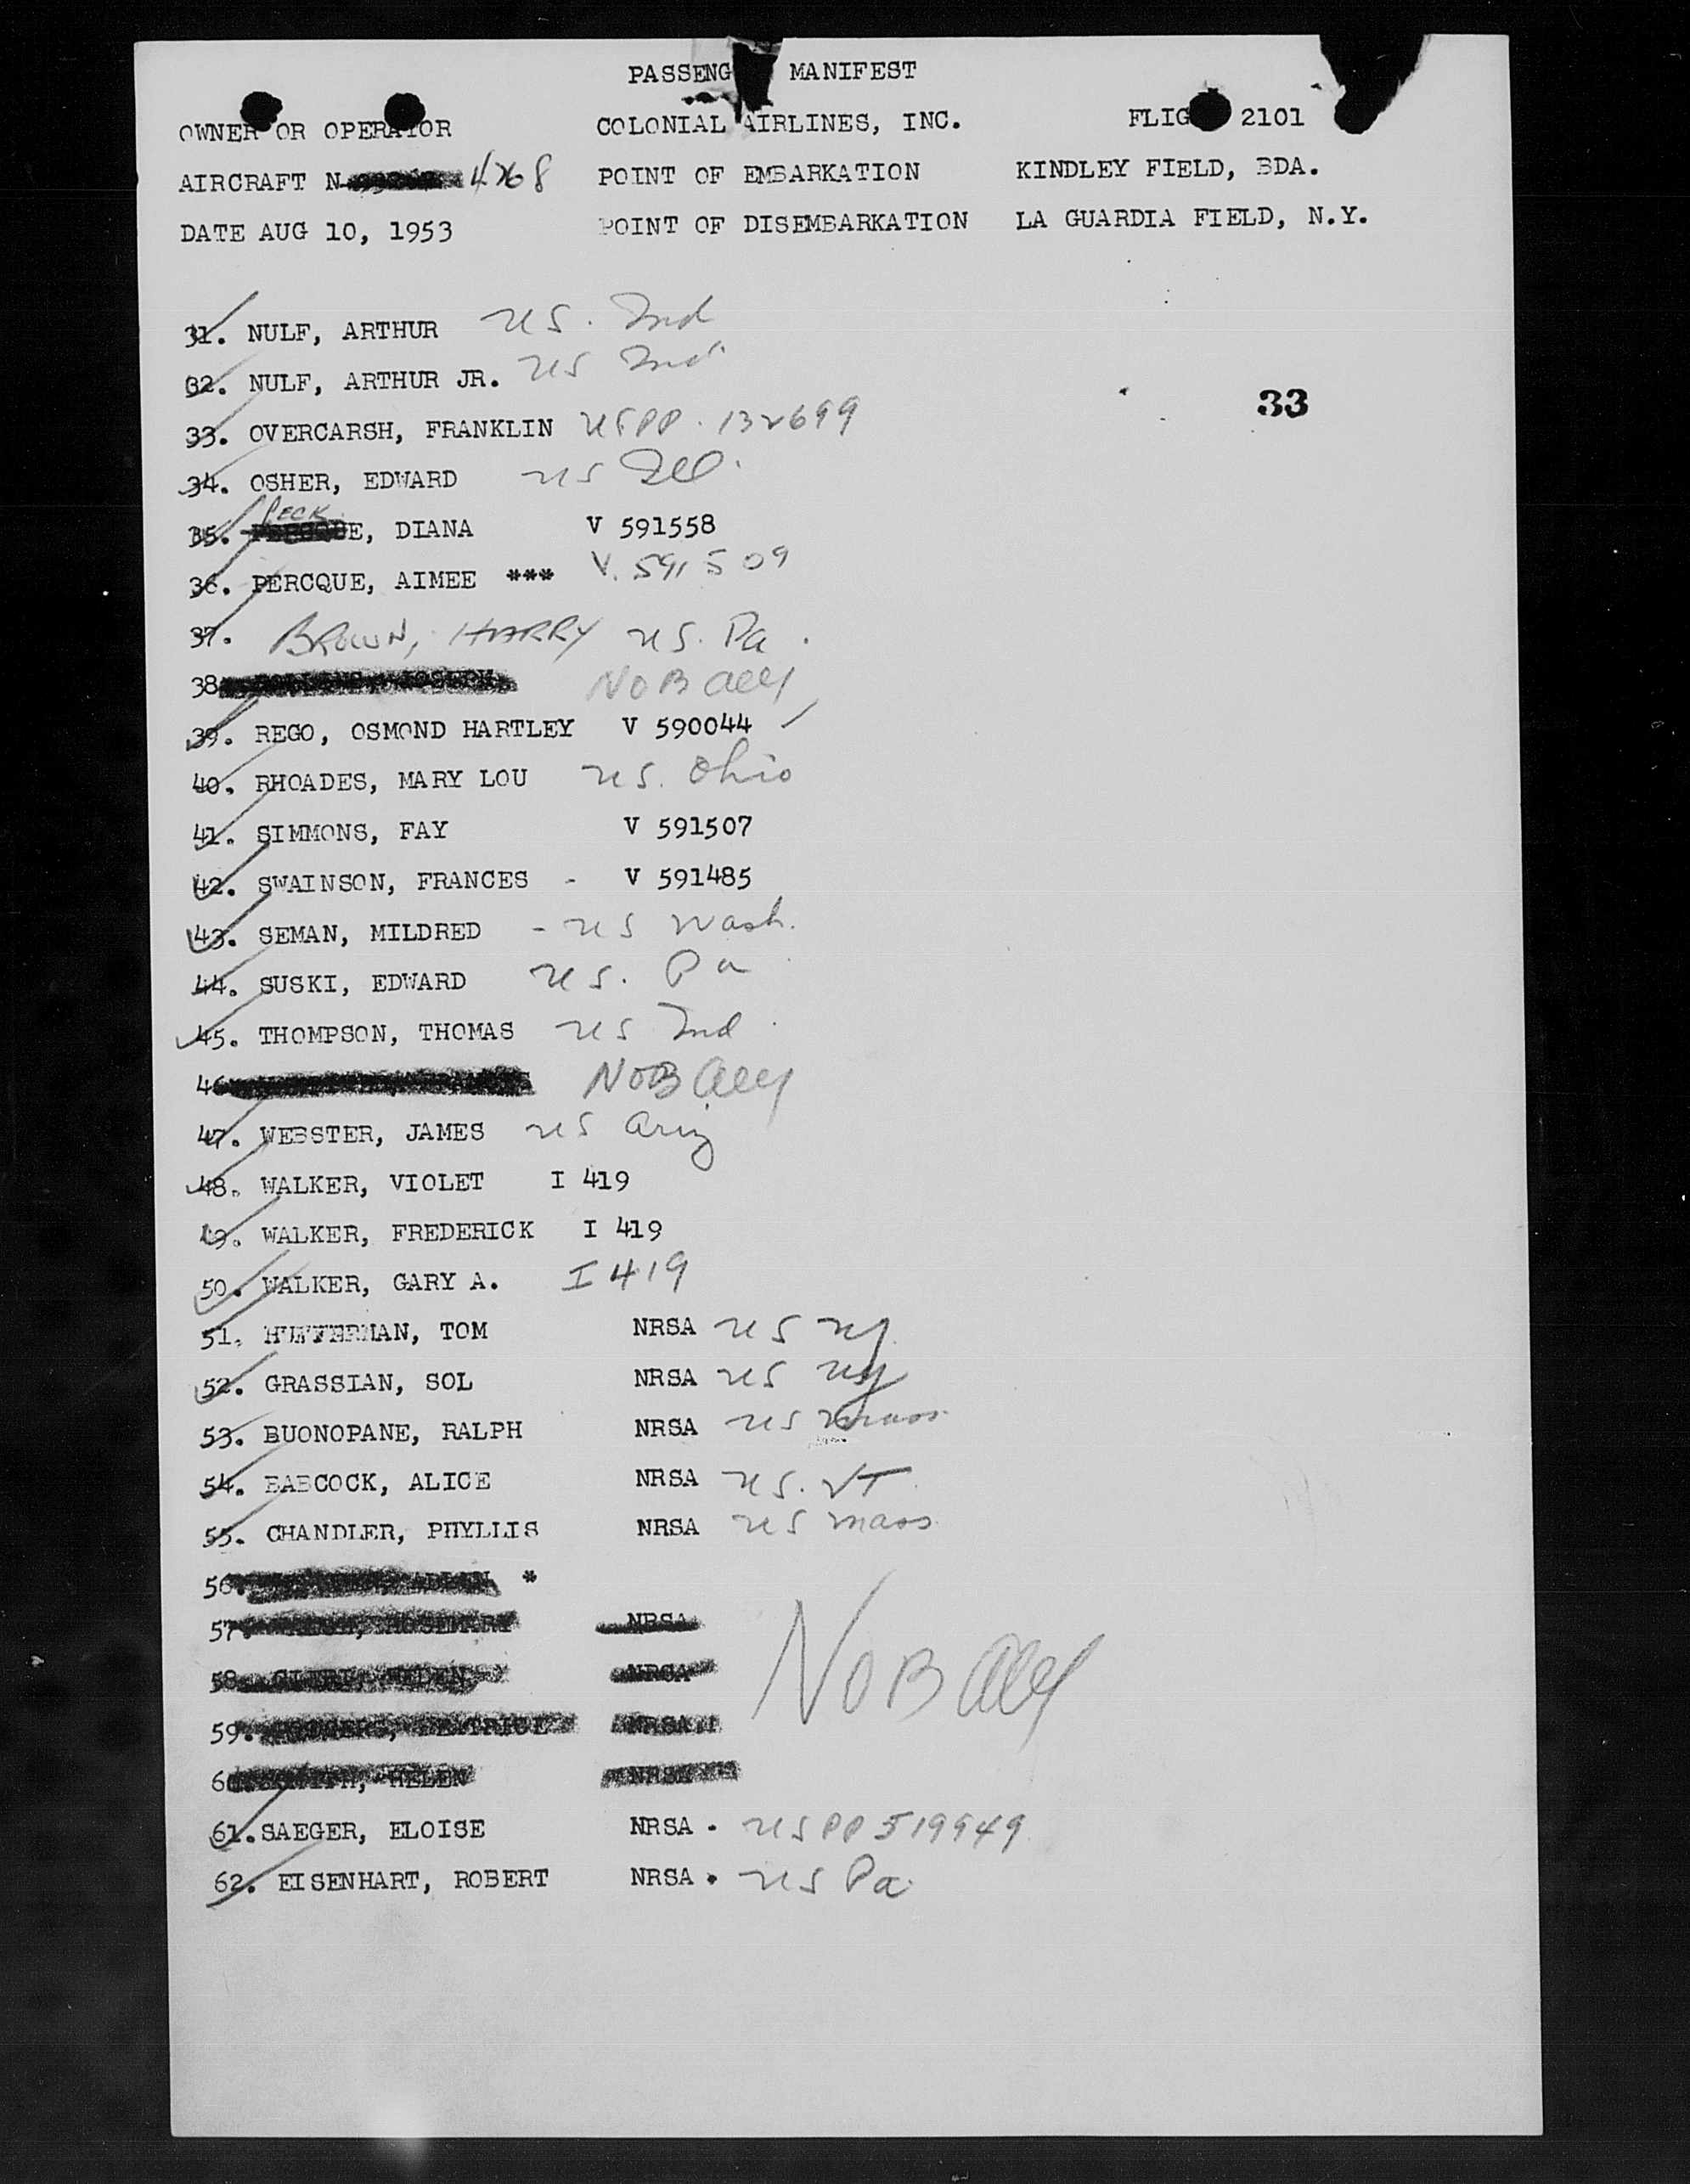 PASSENG MANIFEST
OWNER OR OPERATOR COLONIAL AIRLINES, INC. FLIG 2101
AIRCRAFT N 4768 POINT OF EMBARKATION KINDLEY FIELD, BDA.
DATE AUG 10, 1953 POINT OF DISEMBARKATION LA GUARDIA FIELD, N.Y.
31. NULF, ARTHUR US. Ind
32. NULF, ARTHUR JR. US Ind
33
33. OVERCARSH, FRANKLIN US PP. 132699
34. OSHER, EDWARD US Ill.
PECK
35. E, DIANA V 591558
36. PERCQUE, AIMEE *** V. 591509
37. BROWN, HARRY US. Pa.
38 JOSEPH NOB
39. REGO, OSMOND HARTLEY V 590044
40. RHOADES, MARY LOU US. Ohio
41. SIMMONS, FAY V 591507
42. SWAINSON, FRANCES - V 591485
43. SEMAN, MILDRED - US Wash.
44. SUSKI, EDWARD US. Pa
45. THOMPSON, THOMAS US Ind.
46 NOB
47. WEBSTER, JAMES US Ariz
48. WALKER, VIOLET I 419
49. WALKER, FREDERICK I 419
50. WALKER, GARY A. I 419
51. HEFFERNAN, TOM NRSA US NJ
52. GRASSIAN, SOL NRSA US NY
53. BUONOPANE, RALPH NRSA US Mass.
54. BABCOCK, ALICE NRSA US. VT.
55. CHANDLER, PHYLLIS NRSA US Mass
56. *
57. ROSEMARY NRSA
58. HELEN NRSA NOB
59. BEATRICE NRSA
60. SMITH, HELEN NRSA
61. SAEGER, ELOISE NRSA. US PP 519949
62. EISENHART, ROBERT NRSA. US Pa.